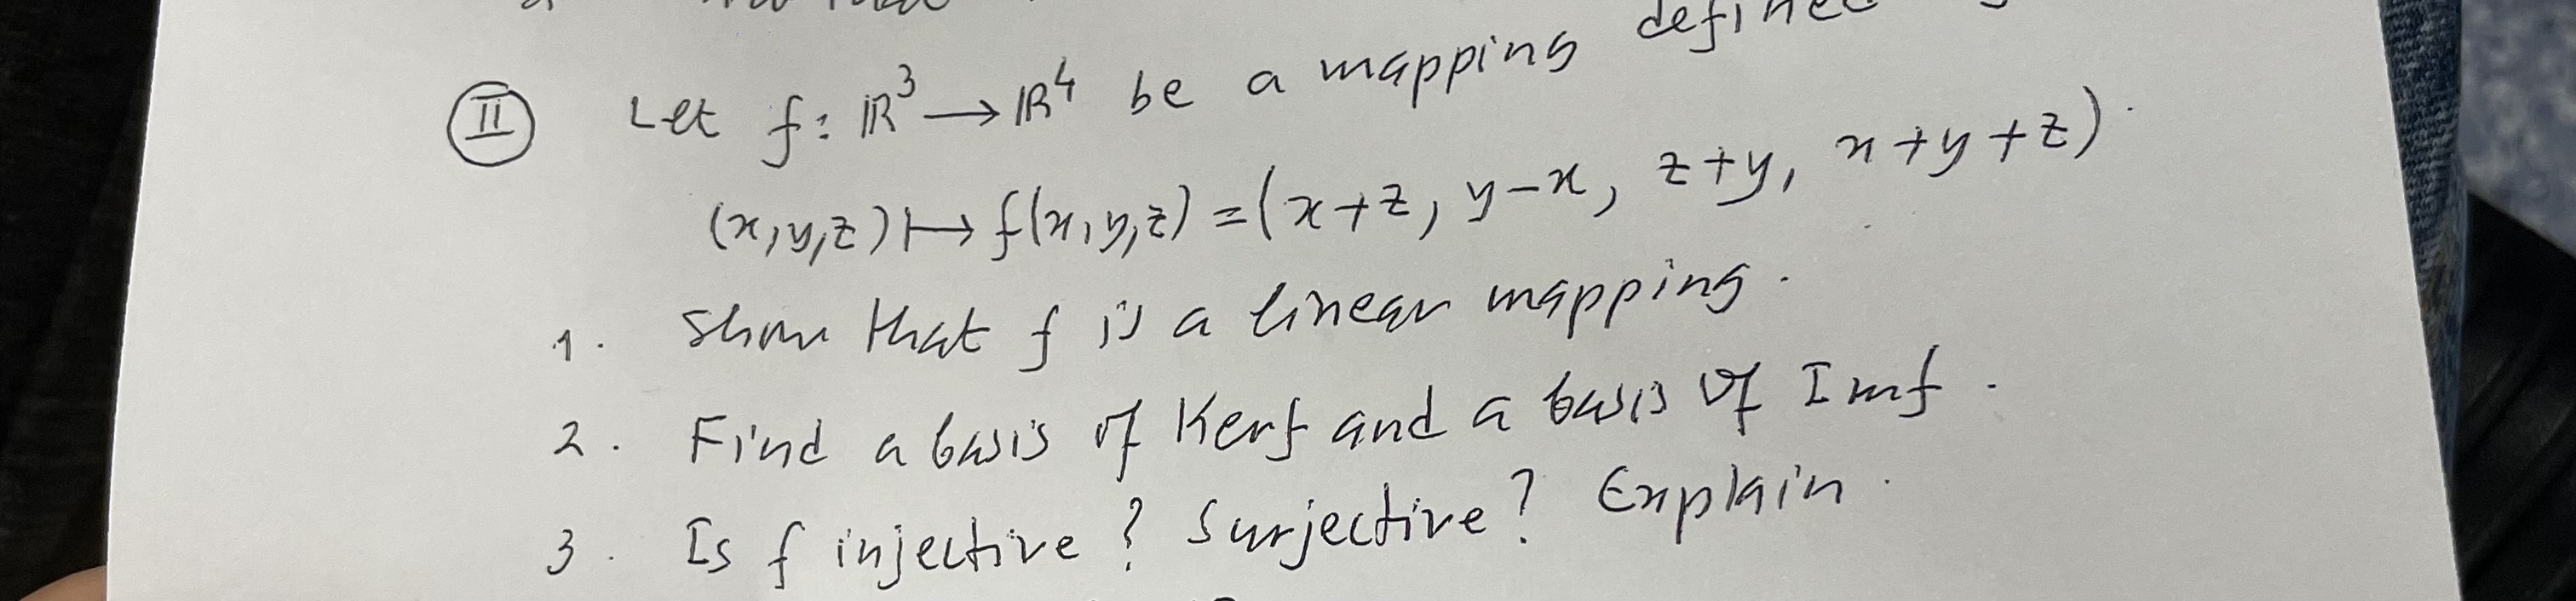 II Let f: ℝ³ → ℝ⁴ be a mapping defined
(x,y,z) ↦ f(x,y,z) = (x+z, y-x, z+y, x+y+z).
1. Show that f is a linear mapping.
2. Find a basis of Kerf and a basis of Imf.
3. Is f injective? Surjective? Explain.